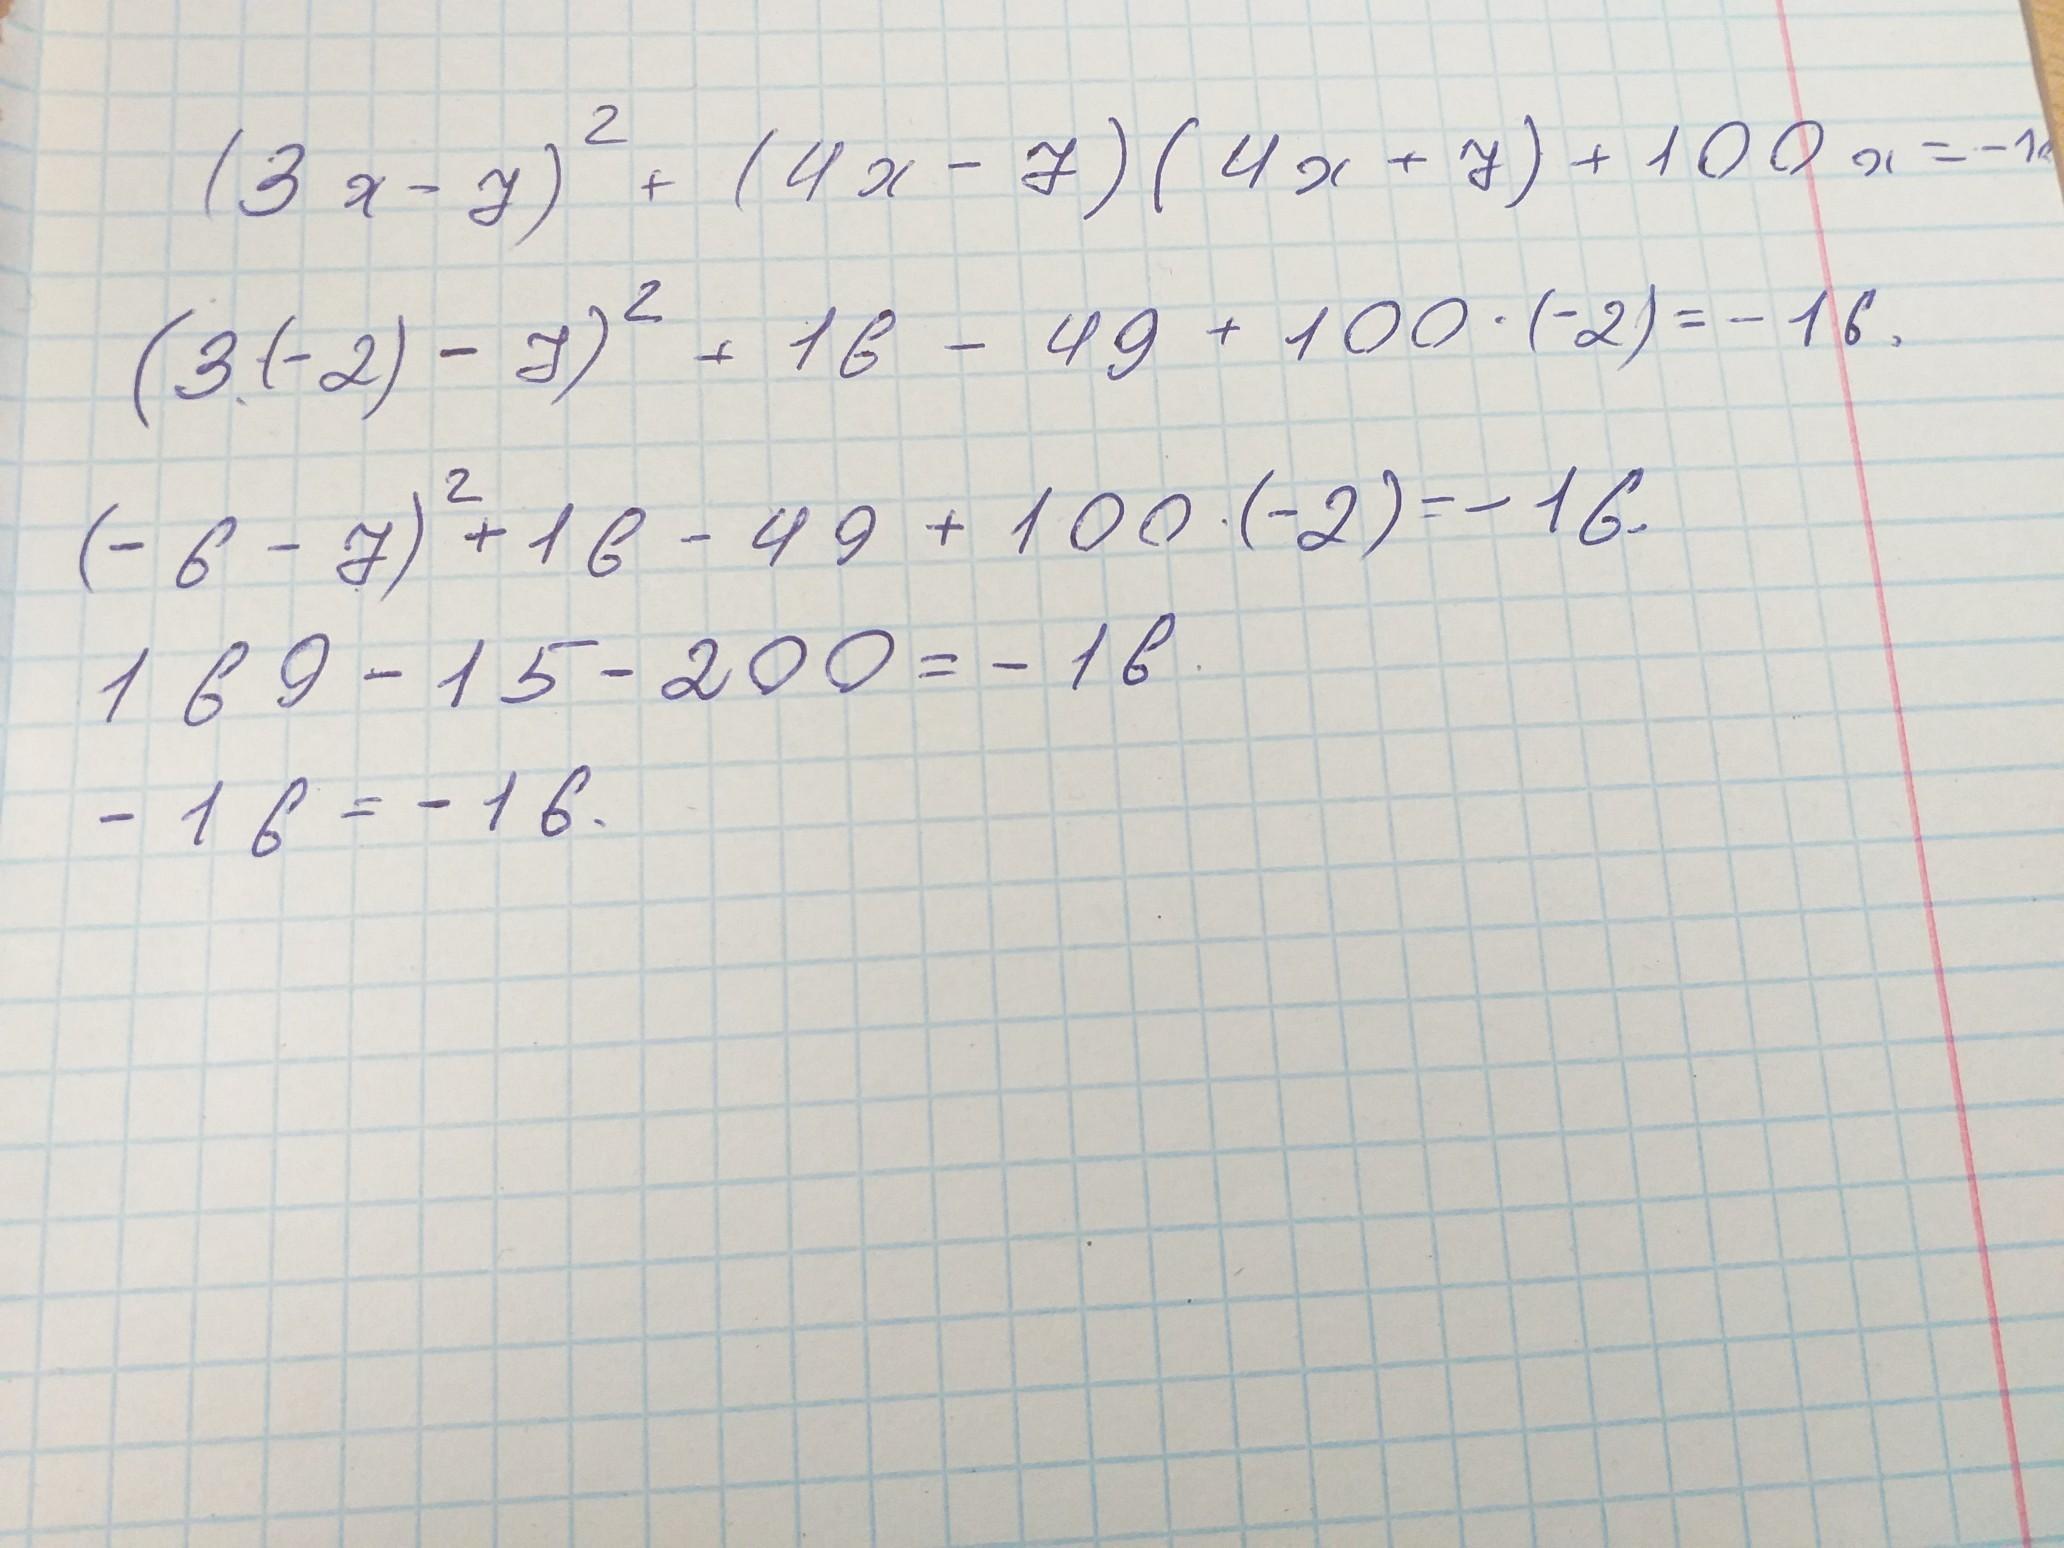 (3x-7)² + (4x-7)(4x+7)+100x=-1
(3·(-2)-7)² + 16 - 49 + 100·(-2)=-16.
(-6-7)²+16-49+100·(-2)=-16.
169-15-200=-16.
-16=-16.